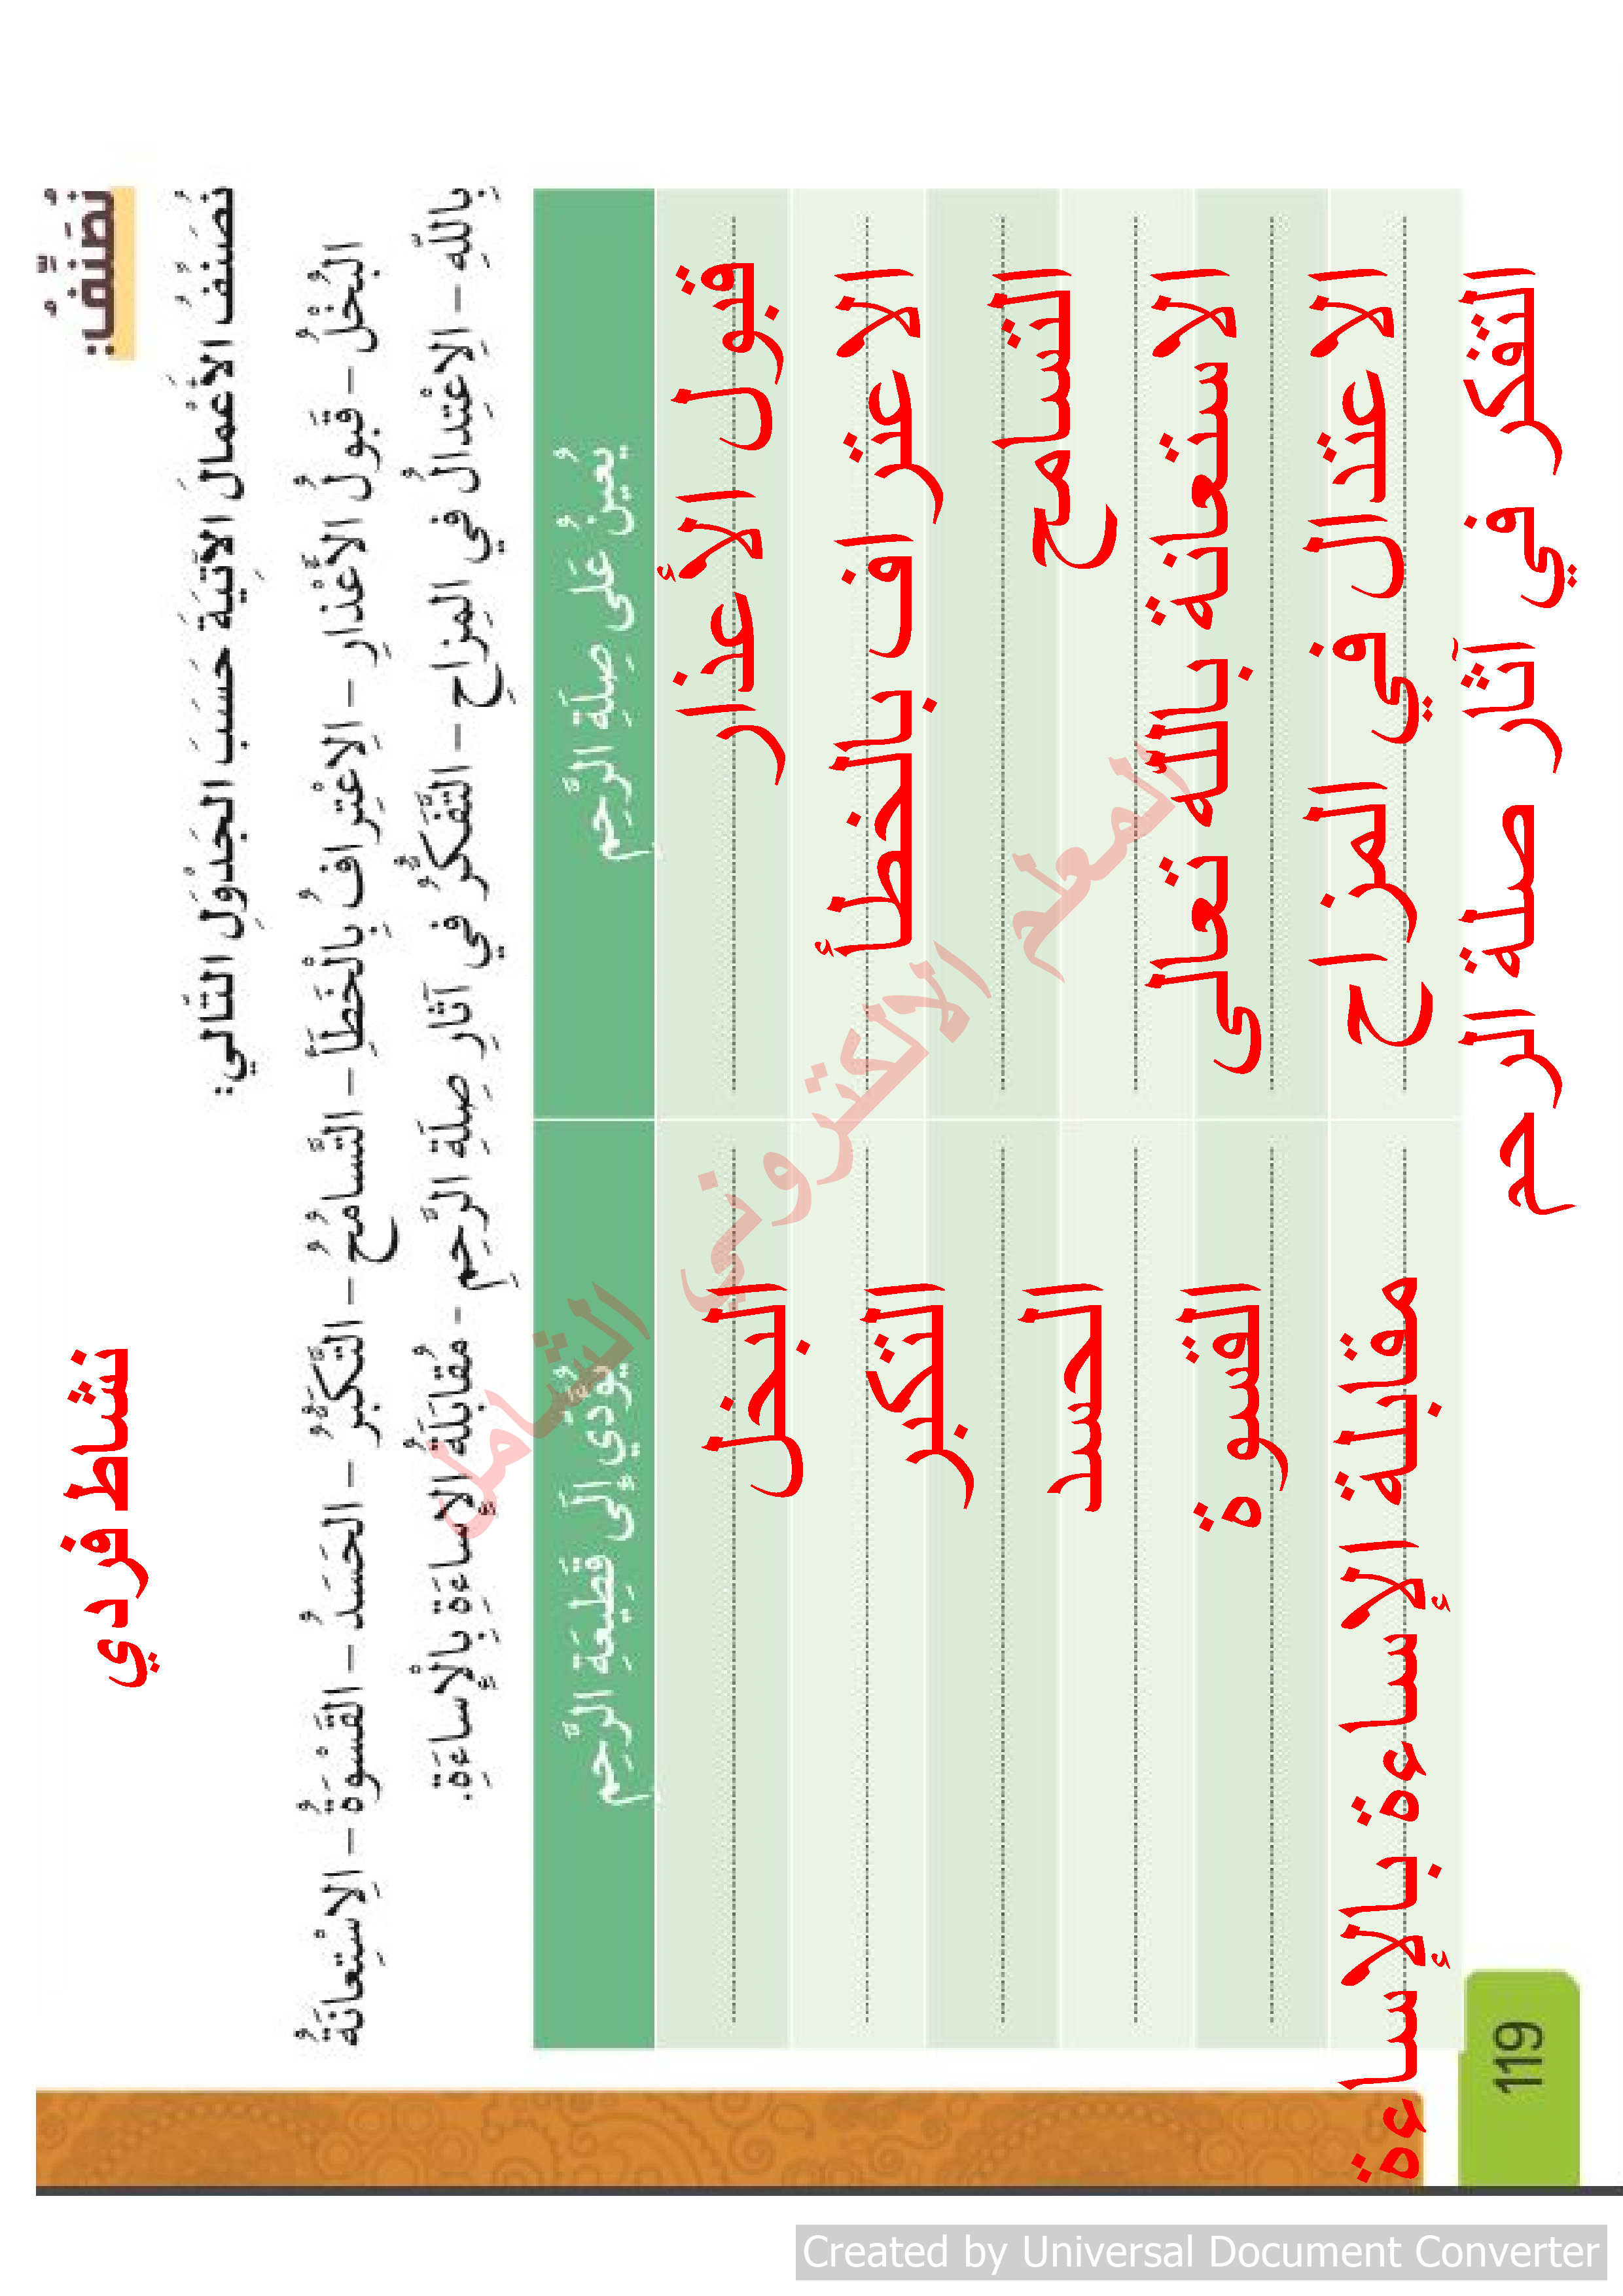 نُصَنِّفُ:
نشاط فردي
نُصَنِّفُ الأَعْمالَ الآتِيَةَ حَسَبَ الجَدْوَلِ التّالي:
البُخْلُ – قَبولُ الأَعْذارِ – الِاعْتِرافُ بِالْخَطَأِ – التَّسامُحُ – التَّكَبُّرُ – الحَسَدُ – القَسْوَةُ – الِاسْتِعانَةُ
بِاللّهِ – الِاعْتِدالُ في المِزاحِ – التَّفَكُّرُ في آثارِ صِلَةِ الرَّحِمِ - مُقابَلَةُ الإِساءَةِ بِالْإِساءَةِ.
يُعينُ عَلى صِلَةِ الرَّحِمِ
يُؤَدّي إِلَى قَطيعَةِ الرَّحِمِ
قبول الأعذار
البخل
الاعتراف بالخطأ
التكبر
التسامح
الحسد
الاستعانة بالله تعالى
القسوة
الاعتدال في المزاح
مقابلة الإساءة بالإساءة
التفكر في آثار صلة الرحم
المعلم الالكتروني الشامل
119
Created by Universal Document Converter